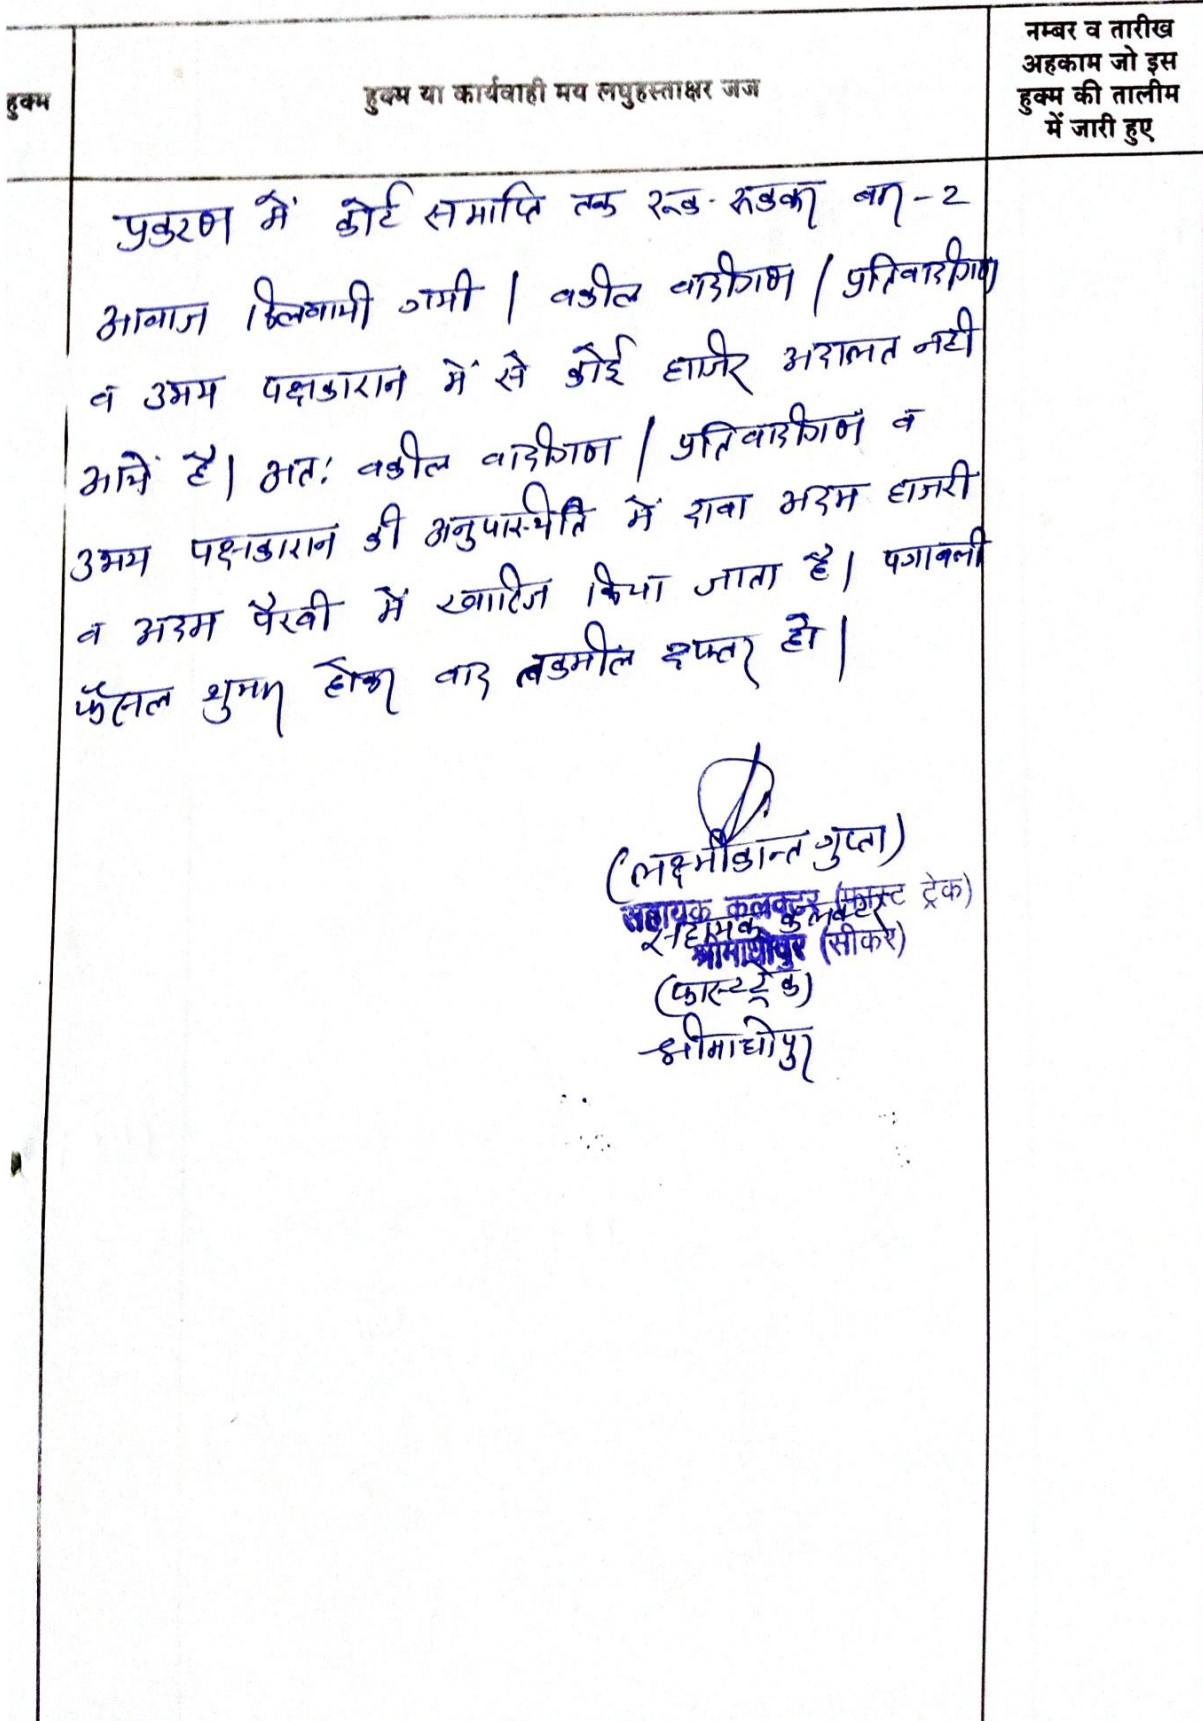 हुक्म
हुक्म या कार्यवाही मय लघुहस्ताक्षर जज
नम्बर व तारीख
अहकाम जो इस
हुक्म की तालीम
में जारी हुए
प्रकरण में कोर्ट समाप्ति तक रूक-रूककर बार-2
आवाज दिलवायी गयी। वकील वादीगण / प्रतिवादीगण
व उभय पक्षकारान में से कोई हाजिर अदालत नही
आयें है। अतः वकील वादीगण / प्रतिवादीगण व
उभय पक्षकारान की अनुपस्थिति में दावा अदम हाजरी
व अदम पैरवी में खारिज किया जाता है। पत्रावली
फैसल शुमार होकर बाद तकमील दफ्तर हो।
(लक्ष्मीकान्त गुप्ता)
सहायक कलक्टर (फास्ट ट्रेक)
सहायक कलक्टर
श्रीमाधोपुर (सीकर)
(फास्ट ट्रेक)
श्रीमाधोपुर